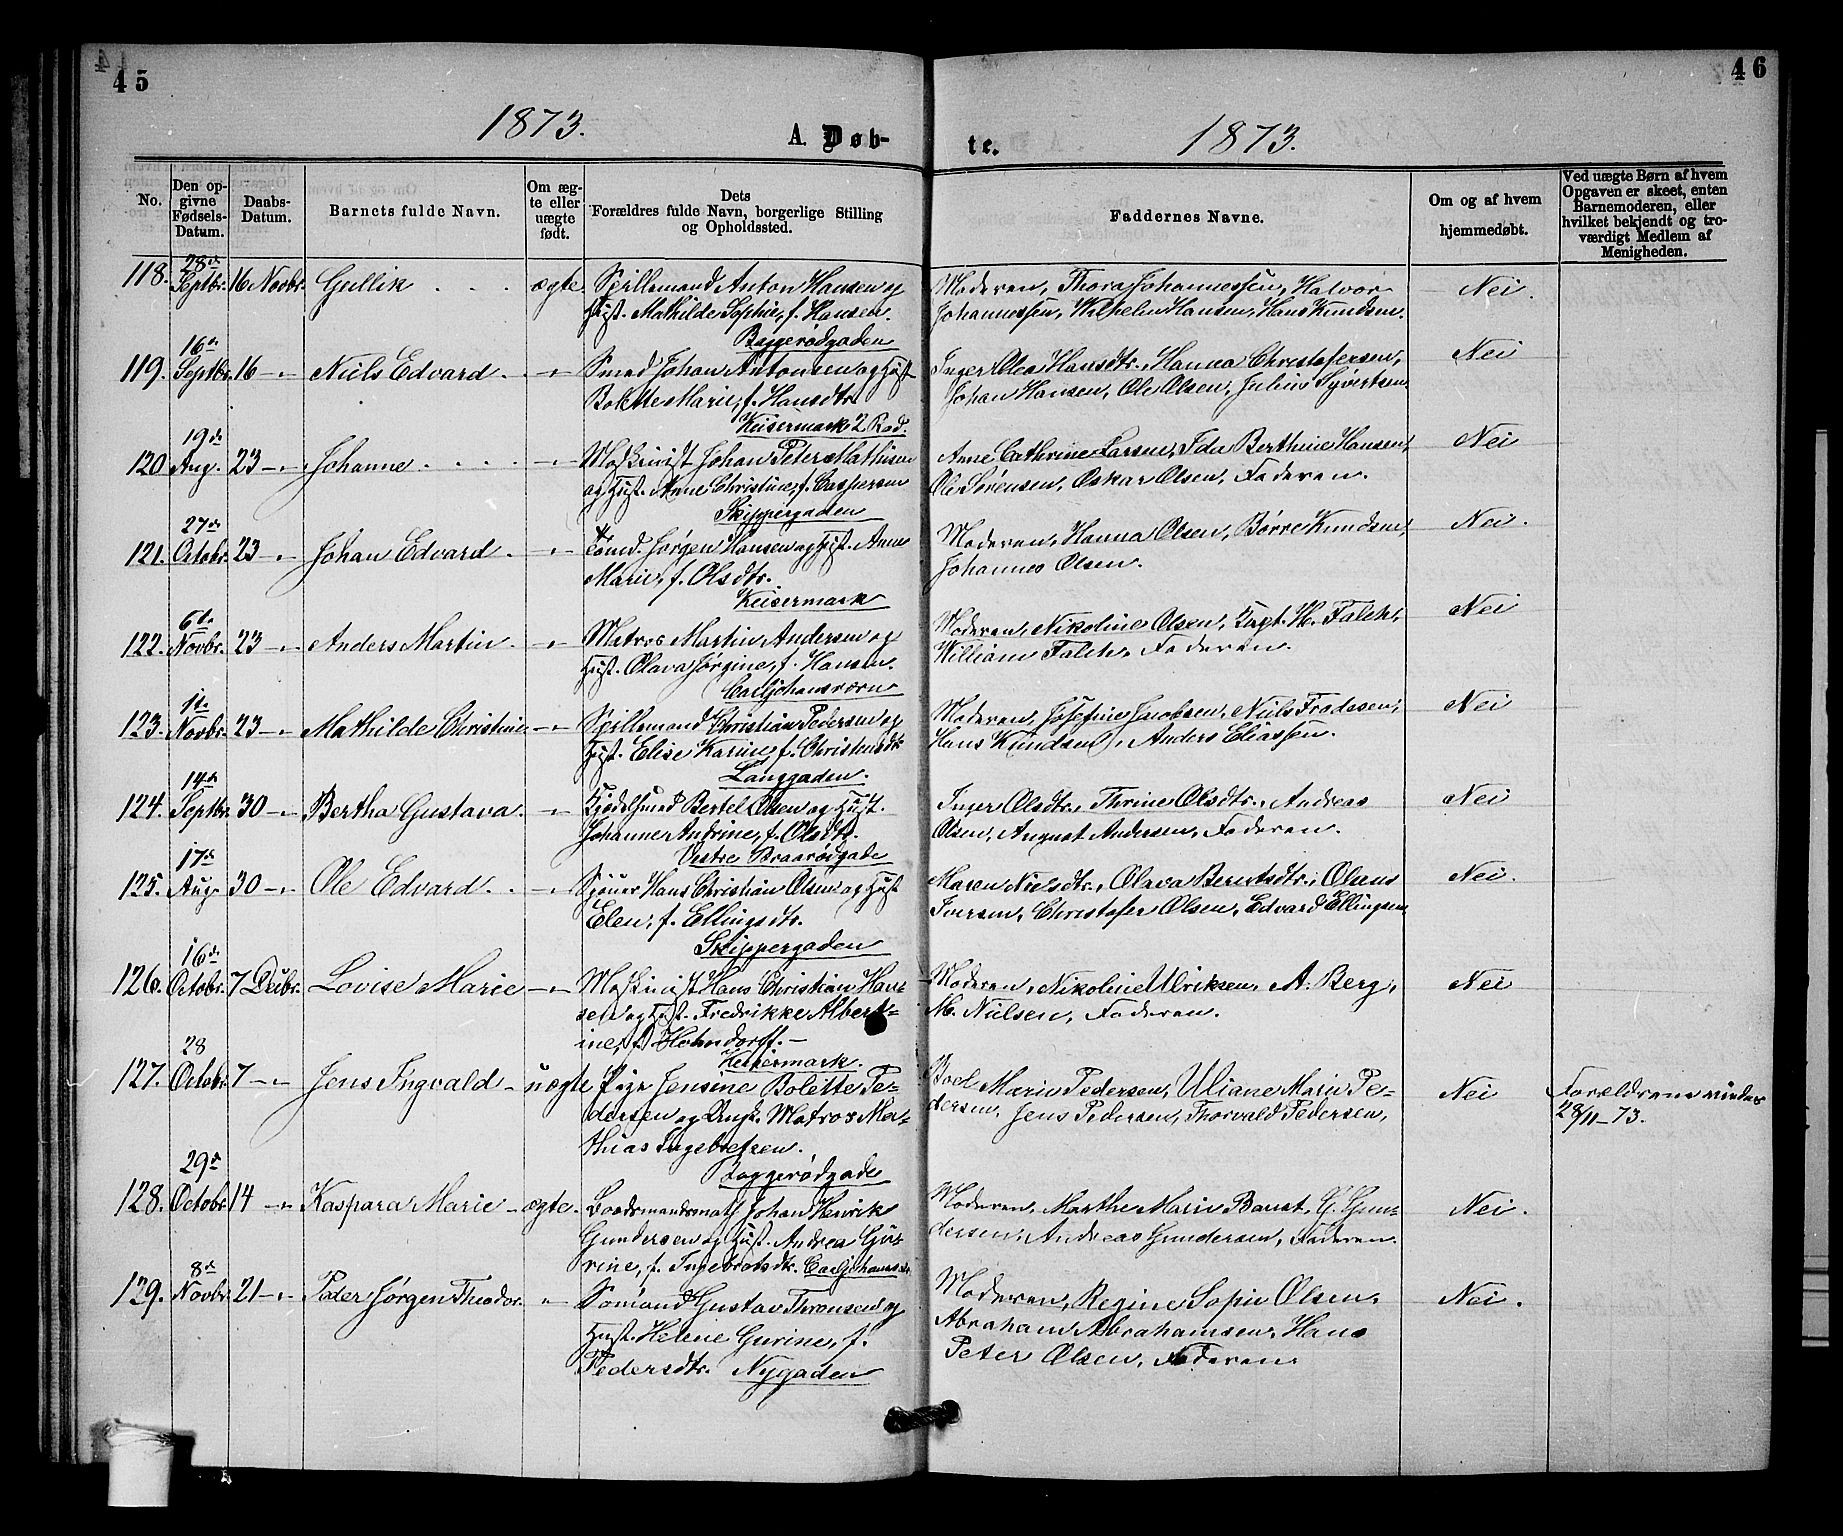 45
46
1873.
A. Døb-
te.
1873.
No.
Den op-
givne
Fødsels-
Datum.
Daabs-
Datum.
Barnets fulde Navn.
Om æg-
te eller
uægte
født.
Dets
Forældres fulde Navn, borgerlige Stilling
og Opholdssted.
Faddernes Navne.
Om og af hvem
hjemmedøbt.
Ved uægte Børn af hvem
Opgaven er skeet, enten
Barnemoderen, eller
hvilket bekjendt og tro-
værdigt Medlem af
Menigheden.
118. 28de Septbr. 16 Novbr. Gullik ægte
Spillemand Anton Hansen og
Hust. Mathilde Sophie, f. Hansen.
Baggerødgaden
Moderen, Thora Johannessen, Halvor
Johannessen, Wilhelm Hansen, Hans Knudsen.
Nei.
119. 16de Septbr. 16 -"- Niels Edvard -"-
Smed Johan Antonsen og Hust
Bolette Marie, f. Hansdtr.
Keisermark 2 Rod.
Inger Olea Hansdtr., Hanna Christofersen,
Johan Hansen, Ole Olsen, Julius Syvertsen.
Nei
120. 19de Aug. 23 -"- Johanne -"-
Maskinist Johan Peter Mathisen
og Hust. Anne Christine, f. Caspersen
Skippergaden
Anne Cathrine Larsen, Ida Berthine Hansen,
Ole Sørensen, Oskar Olsen, Faderen.
Nei
121. 27de Octobr. 23 -"- Johan Edvard -"-
Tømd. Jørgen Hansen og Hust. Anne
Marie, f. Olsdtr.
Keisermark
Moderen, Hanna Olsen, Børre Knudsen,
Johannes Olsen.
Nei.
122. 6te Novbr. 23 -"- Anders Martin -"-
Matros Martin Andersen og
Hust. Olava Jørgine, f. Hansen.
Carljohansværn
Moderen, Nikoline Olsen, Kapt. H. Falch,
William Falch, Faderen.
Nei
123. 1te Novbr. 23 -"- Mathilde Christine -"-
Spillemand Christian Pedersen og
Hust. Elise Karine, f. Christensdtr
Langgaden.
Moderen, Josefine Jacobsen, Niels Fradesen,
Hans Knudsen, Anders Eliassen.
Nei
124. 14de Septbr. 30 -"- Bertha Gustava. -"-
Kjedelsmed Bertel Olsen og Hust.
Johanne Andrine, f. Olsdtr.
Vestre Braarødgade
Inger Olsdtr., Thrine Olsdtr., Andreas
Olsen, August Andersen, Faderen.
Nei
125. 17de Aug. 30 -"- Ole Edvard -"-
Sjouer Hans Christian Olsen og Hust
Elen, f. Ellingsdtr.
Skippergaden
Maren Nielsdtr., Olava Berntsdtr., Olaus
Iversen, Christofer Olsen, Edvard Ellingsen
Nei.
126. 16de Octobr. 7 Decbr. Lovise Marie -"-
Maskinist Hans Christian Han-
sen og Hust. Fredrikke Albert-
ine, f. Hohndorff. -
Keisermark.
Moderen, Nikoline Ulriksen, A. Berg,
M. Nielsen, Faderen.
Nei
127. 28 Octobr. 7 -"- Jens Ingvald - uægte
Pige Jensine Bolette Pe-
dersen og Ungk. Matros Ma-
thias Ingebretsen.
Baggerødgade
Boel Marie Pedersen, Uliane Marie Pe-
dersen, Jens Pedersen, Thorvald Pedersen,
Nei
Forældrene viedes
28/11-73.
128. 29de Octobr. 14 -"- Kaspara Marie - ægte.
Baadsmandsmath Johan Henrik
Gundersen og Hust. Andrea Gu-
rine, f. Ingebretsdtr. Carljohansv.
Moderen, Marthe Marie Banst, G. Gun-
dersen, Andreas Gundersen, Faderen.
Nei.
129. 8de Novbr. 21 -"- Peder Jørgen Theodor. "
Sømand Gustav Thronsen og
Hust. Helene Gurine, f.
Pedersdtr. Nygaden
Moderen, Regine Sopie Olsen,
Abraham Abrahamsen, Hans
Peter Olsen, Faderen.
Nei.